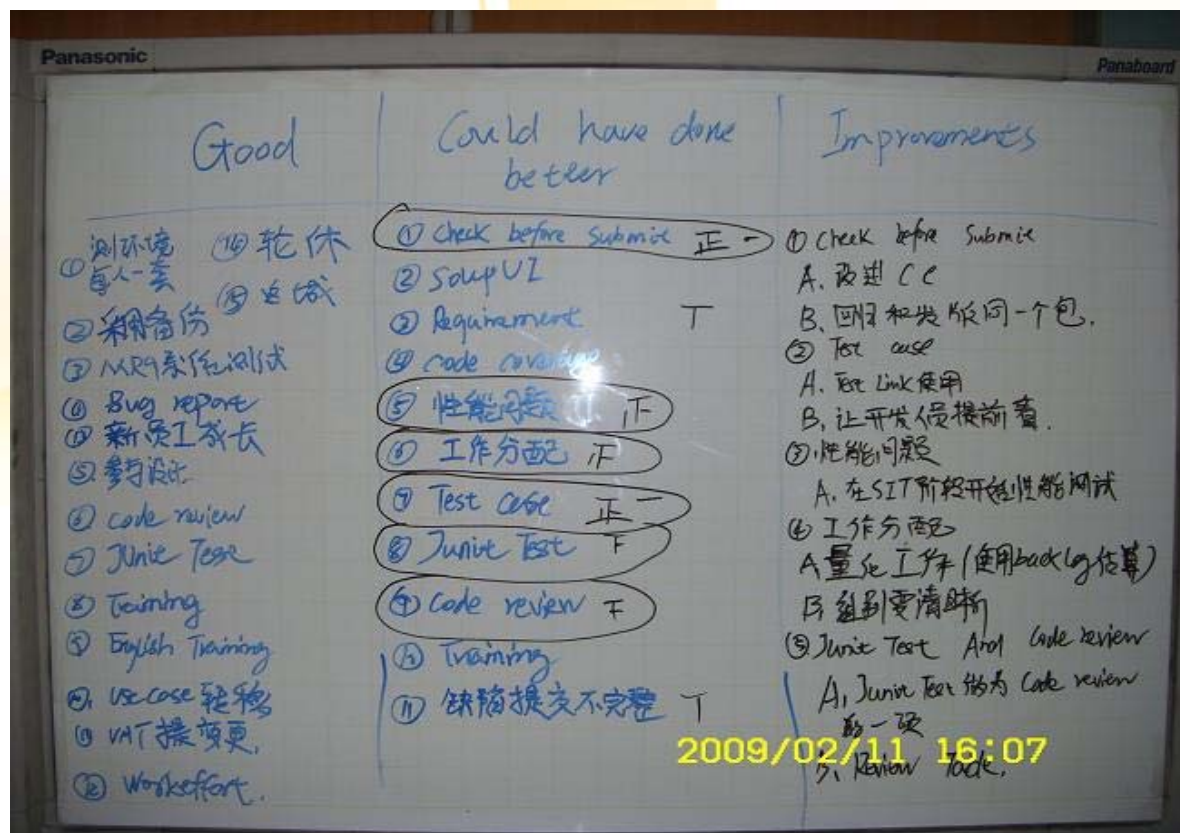 Panasonic
Panaboard
Good
① 测环境
每人一套
⑭ 轮休
⑮
② 采用备份
③ 测试
④ Bug report
新员工成长
⑤ 参与设计
⑥ code review
⑦ JUnit Test
⑧ Training
⑨ English Training
⑩ Use case 转移
⑪ UAT 提变更
⑫ Workeffort.
Could have done
better
① Check before Submit 正一
② SoupUI
③ Requirement 丅
④ code coverage
⑤ 性能问题
⑥ 工作分配
⑦ Test case 正一
⑧ Junit Test 下
⑨ Code review 下
⑩ Training
⑪ 缺陷提交不完整 丅
Improvements
① Check before Submit
A. 改进 CC
B、回归和发版同一个包.
② Test case
A. Test Link 使用
B. 让开发人员提前看.
③ 性能问题
A. 在SIT阶段开始性能测试
④ 工作分配
A 量化工作 (使用backlog估算)
B 组别要清晰
⑤ Junit Test And Code review
A, Junit Test 做为 Code review
的一项
B、Review
2009/02/11 16:07